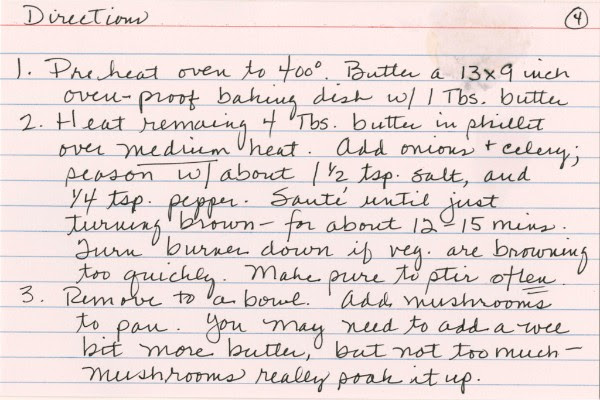 Directions ④
1. Preheat oven to 400°. Butter a 13x9 inch
oven-proof baking dish w/ 1 Tbs. butter
2. Heat remaing 4 Tbs. butter in skillet
over medium heat. Add onions + celery;
season w/ about 1 1/2 tsp. salt, and
1/4 tsp. pepper. Sauté until just
turning brown - for about 12-15 mins.
Turn burner down if veg. are browning
too quickly. Make sure to stir often.
3. Remove to a bowl. Add mushrooms
to pan. You may need to add a wee
bit more butter, but not too much -
mushrooms really soak it up.